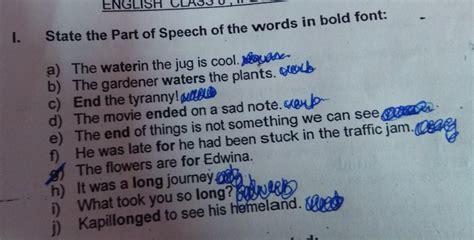 ENGLISH CLASS
I. State the Part of Speech of the words in bold font:
a) The waterin the jug is cool.
b) The gardener waters the plants. verb
c) End the tyranny!
d) The movie ended on a sad note. verb
e) The end of things is not something we can see
f) He was late for he had been stuck in the traffic jam.
g) The flowers are for Edwina.
h) It was a long journey
i) What took you so long?
j) Kapillonged to see his homeland.